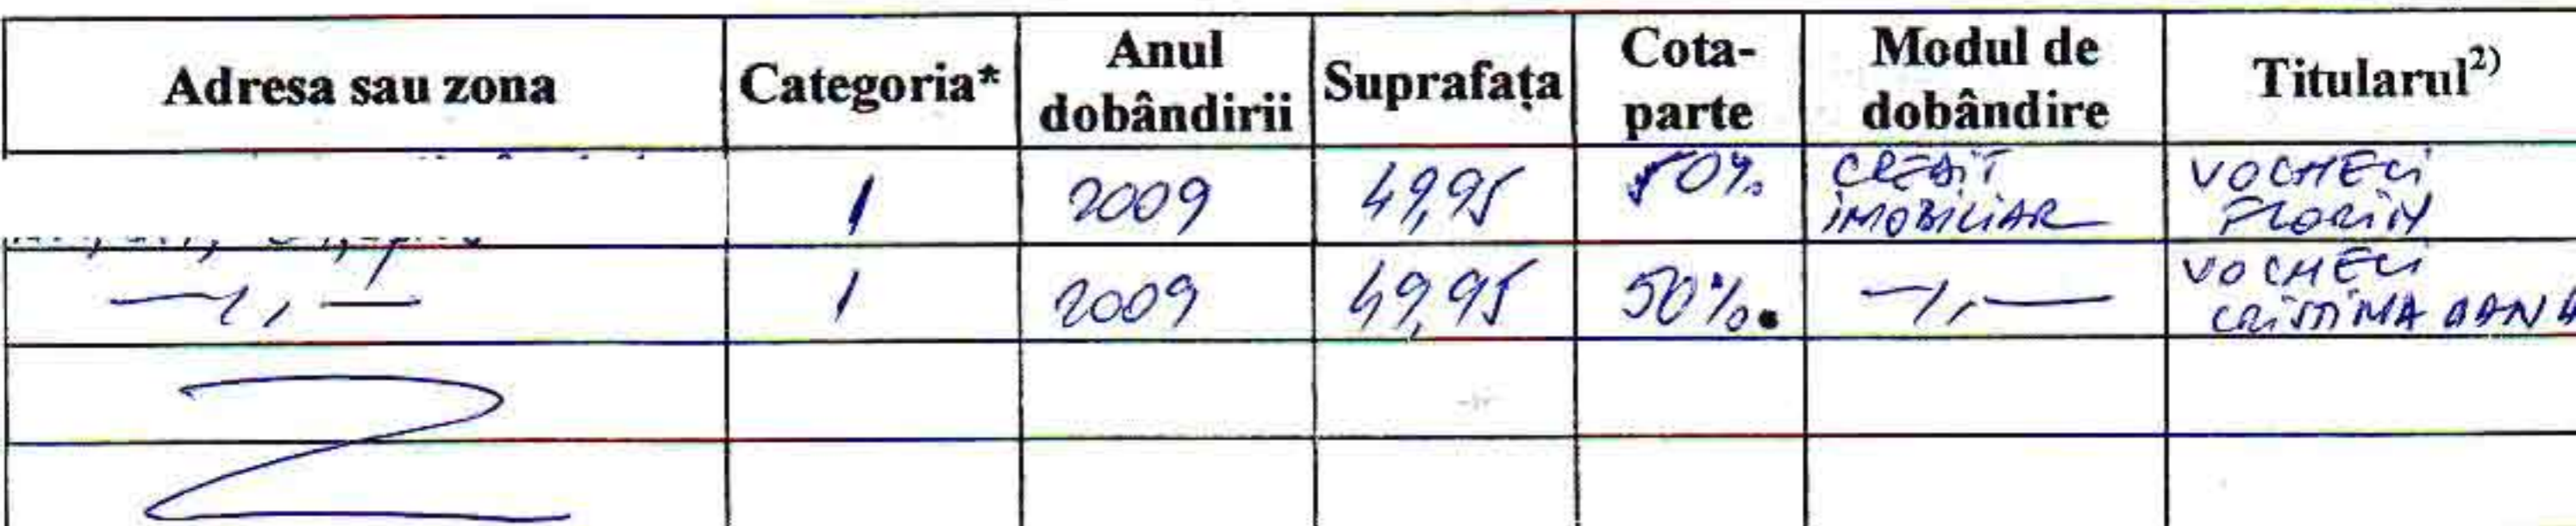 Adresa sau zona Categoria* Anul dobândirii Suprafața Cota-parte Modul de dobândire Titularul²⁾
1 2009 49,95 50% CREDIT IMOBILIAR VOCHECI FLORIN
—〃— 1 2009 49,95 50% —〃— VOCHECI CRISTINA OANA